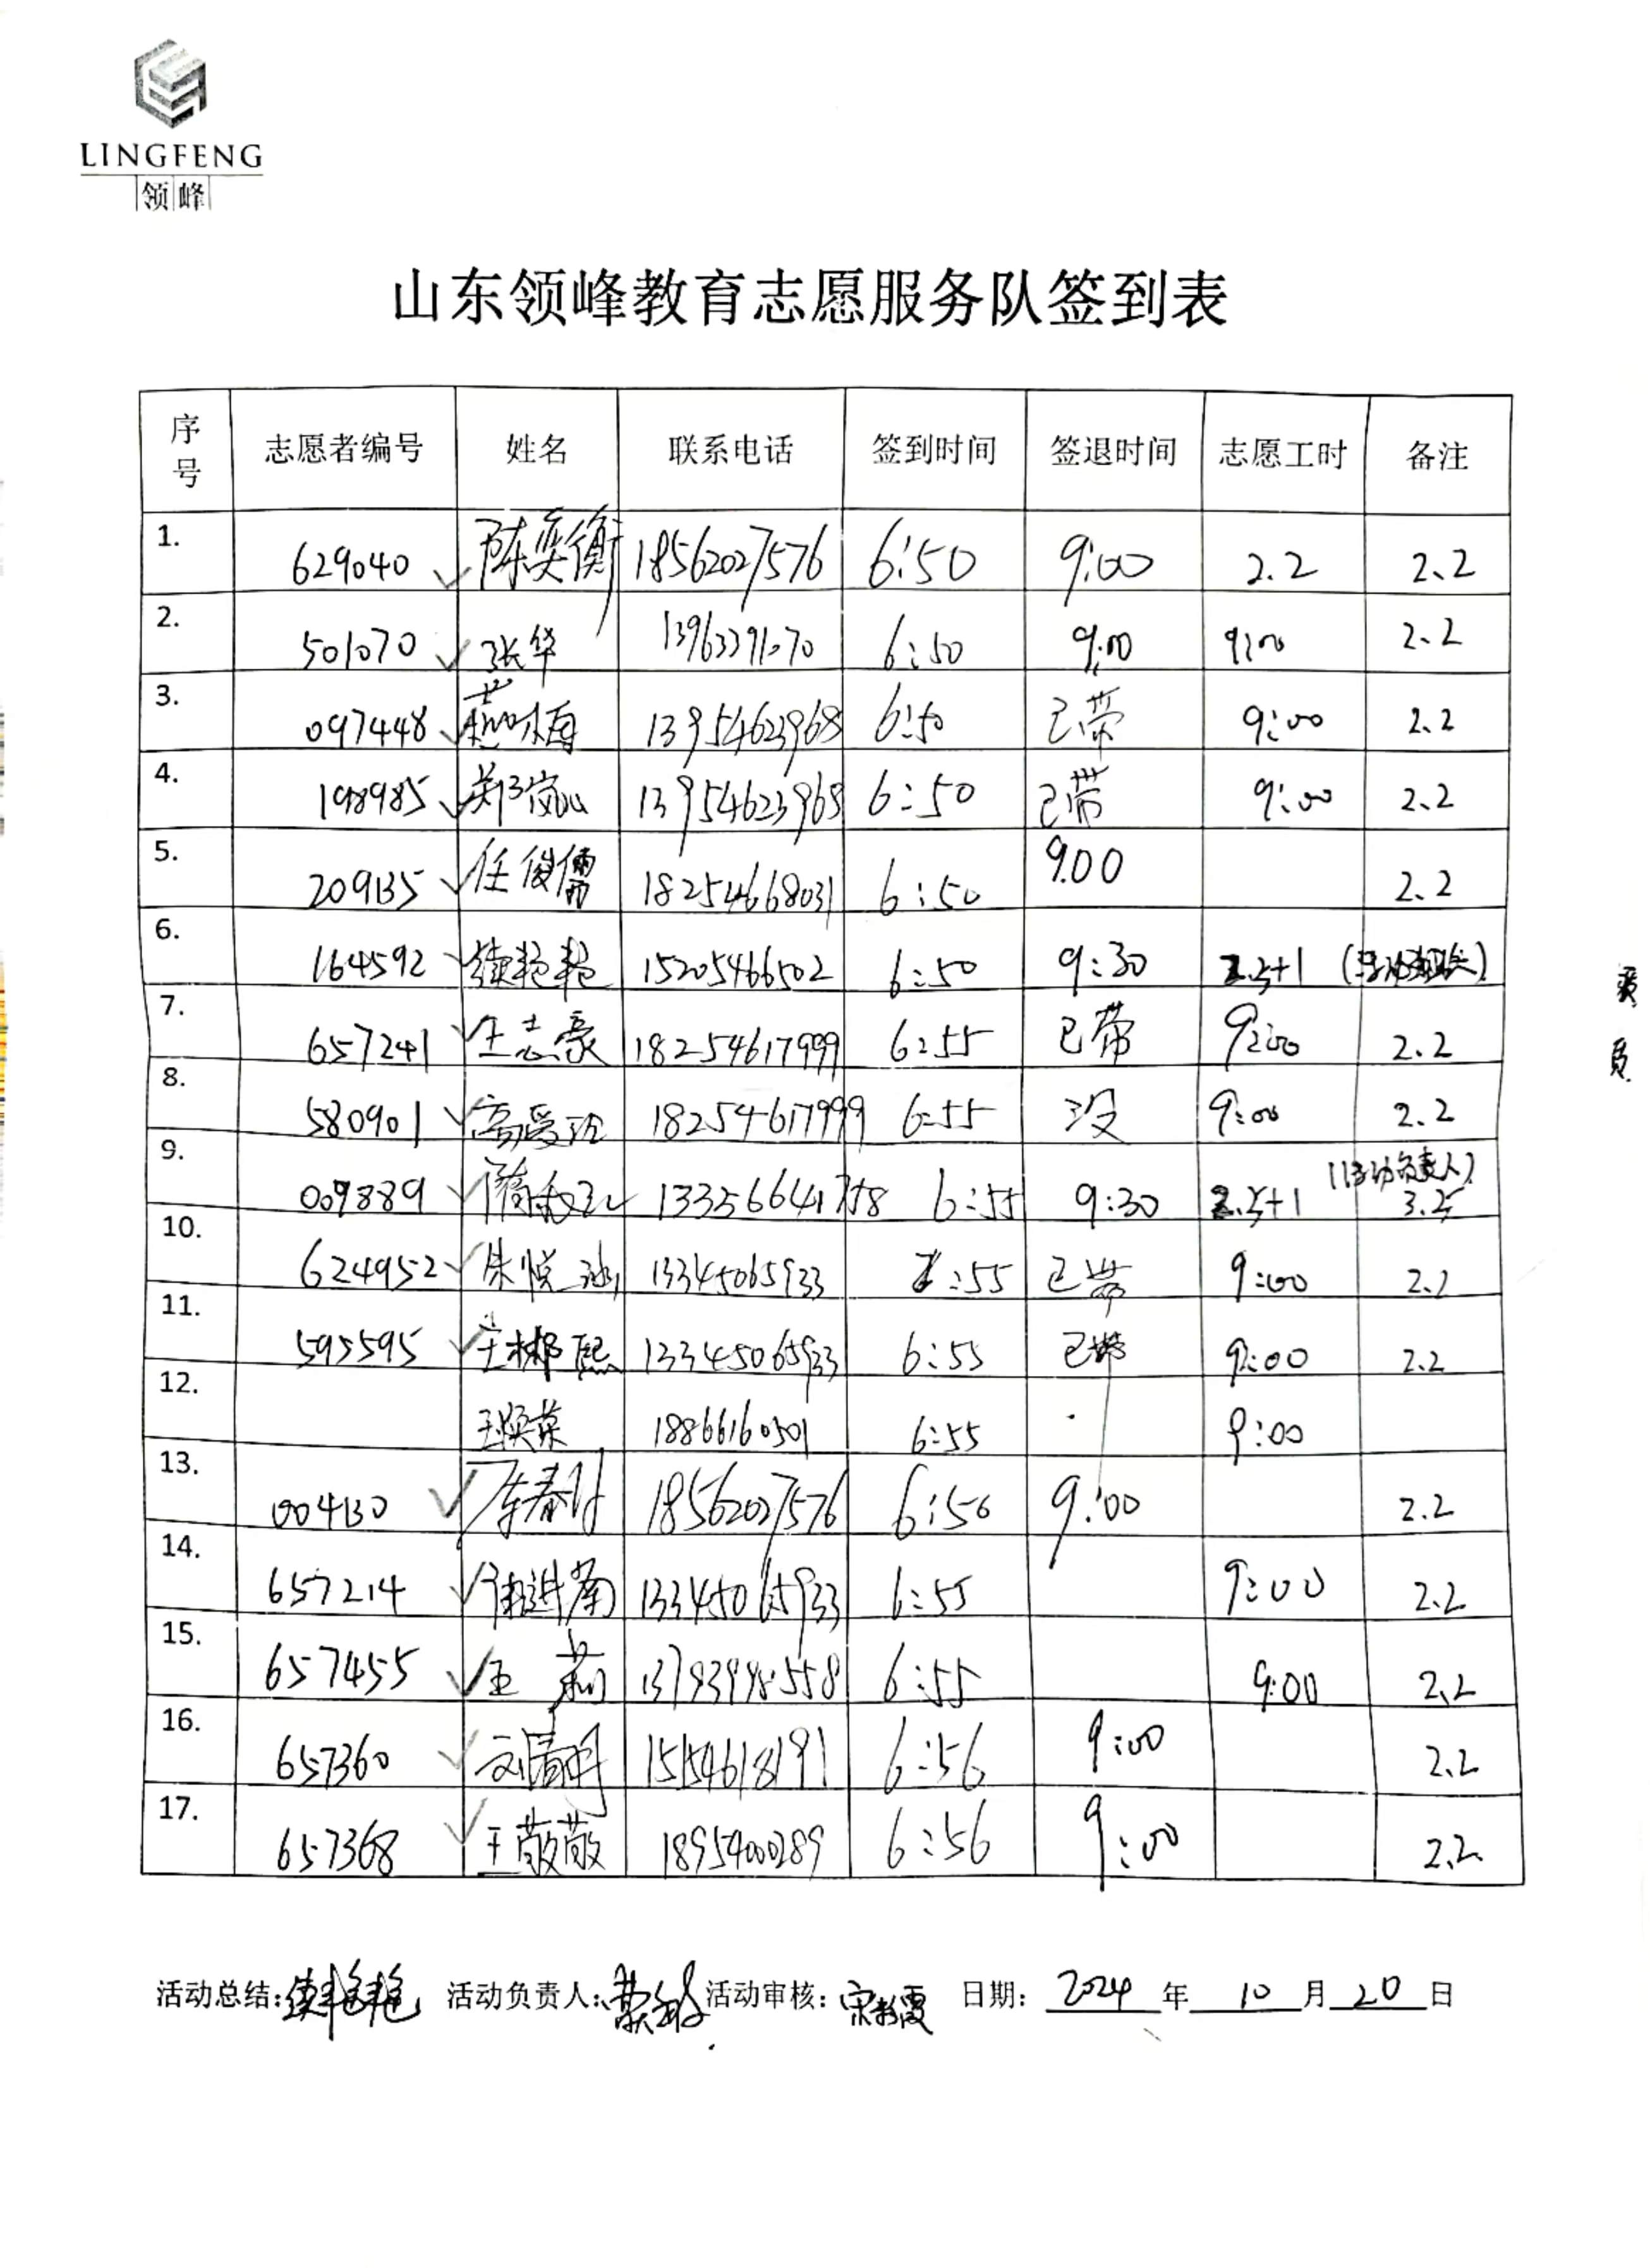 LINGFENG
领峰
山东领峰教育志愿服务队签到表
序号 志愿者编号 姓名 联系电话 签到时间 签退时间 志愿工时 备注
1. 629040 ✓ 陈奕衡 18562027576 6:50 9:00 2.2 2.2
2. 501070 ✓ 张华 13963391070 6:50 9:00 9:00 2.2
3. 097448 ✓ 13954623968 6:50 已带 9:00 2.2
4. 198985 ✓ 郑岚心 13954623968 6:50 已带 9:00 2.2
5. 209135 ✓ 任俊儒 18254668031 6:50 9.00 2.2
6. 164592 ✓ 续艳艳 15205466502 6:50 9:30 2.5+1
7. 657241 ✓ 王志豪 18254617999 6:55 已带 9:00 2.2
8. 580901 ✓ 高爱玲 18254617999 6:55 没 9:00 2.2
9. 009889 ✓ 13356641758 6:55 9:30 2.5+1 (活动负责人) 3.5
10. 624952 ✓ 朱悦 13345065933 6:55 已带 9:00 2.2
11. 595595 ✓ 王彬熙 13345065933 6:55 已带 9:00 2.2
12. 王焕荣 18866160501 6:55 9:00
13. 004130 ✓ 18562027576 6:50 9:00 2.2
14. 657214 ✓ 13345065933 6:55 9:00 2.2
15. 657455 ✓ 王莉 13793998558 6:55 9:00 2.2
16. 657360 ✓ 刘清明 15154618191 6:56 9:00 2.2
17. 657368 ✓ 王敬敬 18954000289 6:56 9:00 2.2
活动总结: 续艳艳 活动负责人: 活动审核: 宋书霞 日期: 2024 年 10 月 20 日